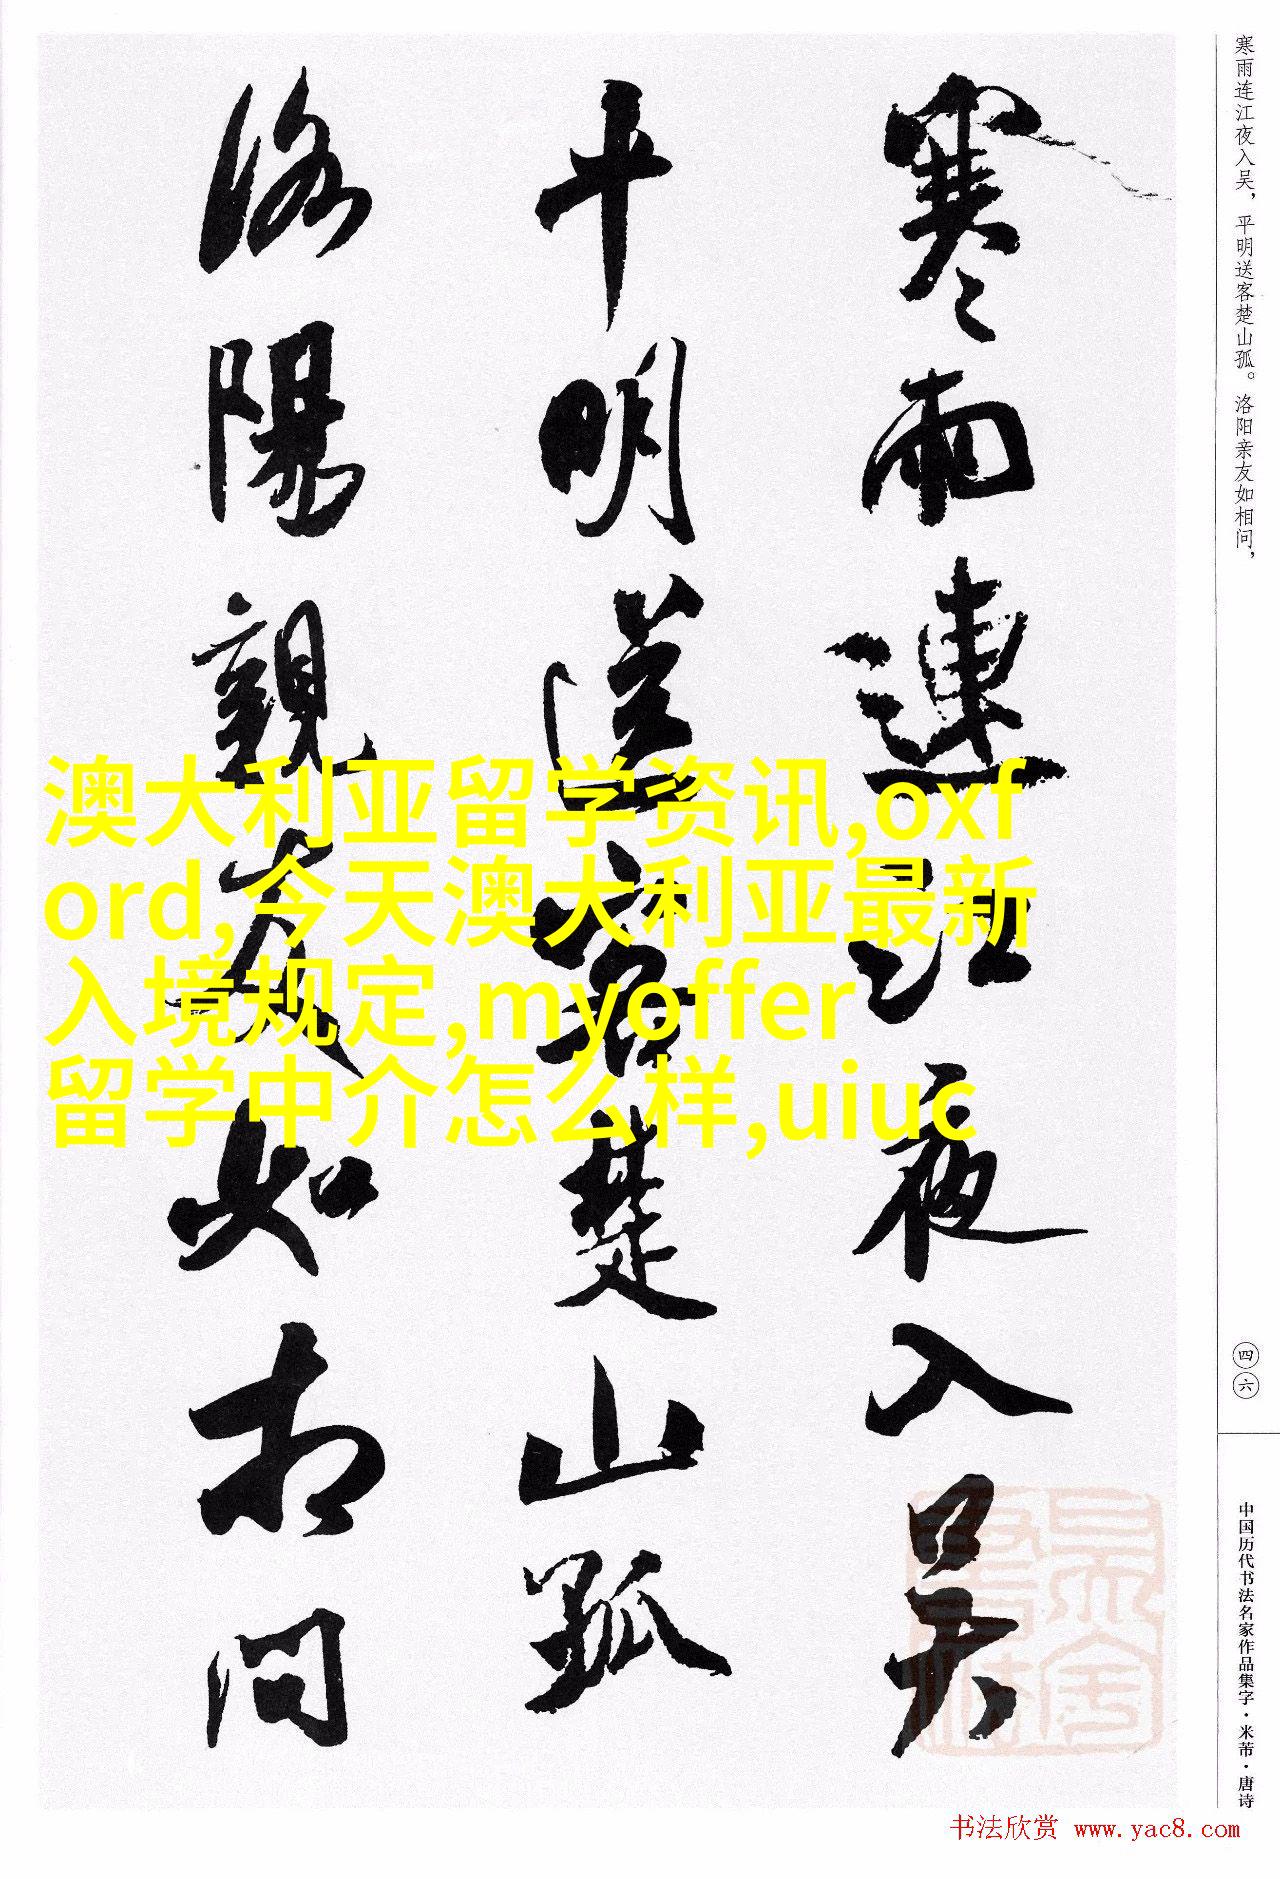 寒雨连江夜入吴，平明送客楚山孤。洛阳亲友如相问，
寒雨連江夜入吴
平明送客楚山孤
洛陽親友如相问
澳大利亚留学资讯,oxf
ord,今天澳大利亚最新
入境规定,myoffer
留学中介怎么样,uiuc
四六
中国历代书法名家作品集字·米芾·唐诗
书法欣赏 www.yac8.com